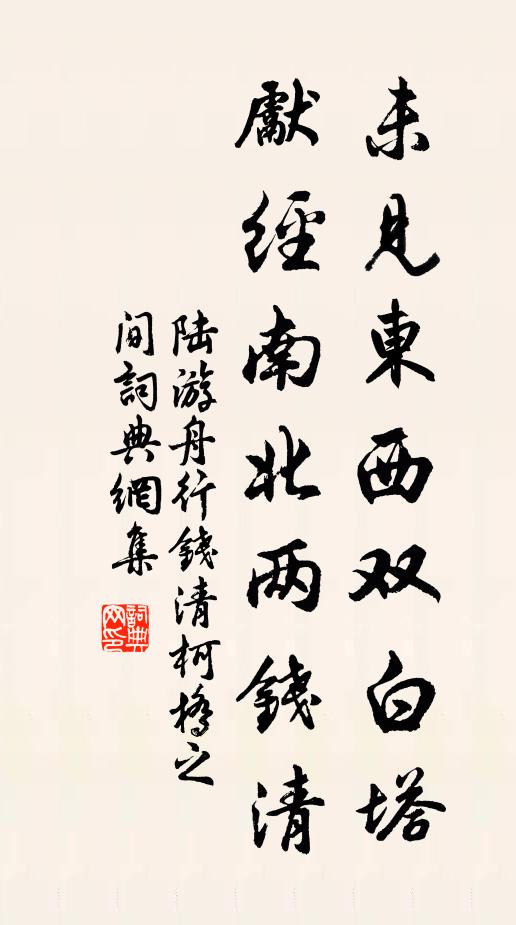 未見東西双白塔
厭經南北两錢清
陆游舟行錢清柯橋之
間詞典網集
詞典网印